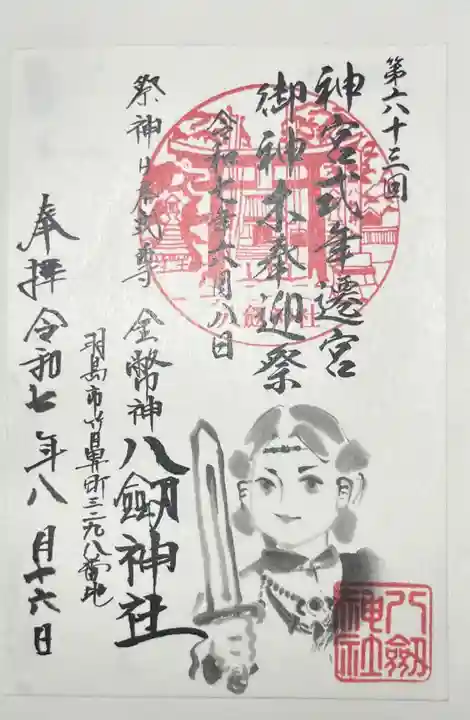 第六十三回
神宮式年遷宮
御神木奉迎祭
令和七年六月八日
祭神日本武尊
金幣神 八劔神社
羽島市竹鼻町三二九八番地
奉拝 令和七年八月十六日
八劔神社
八劔神社